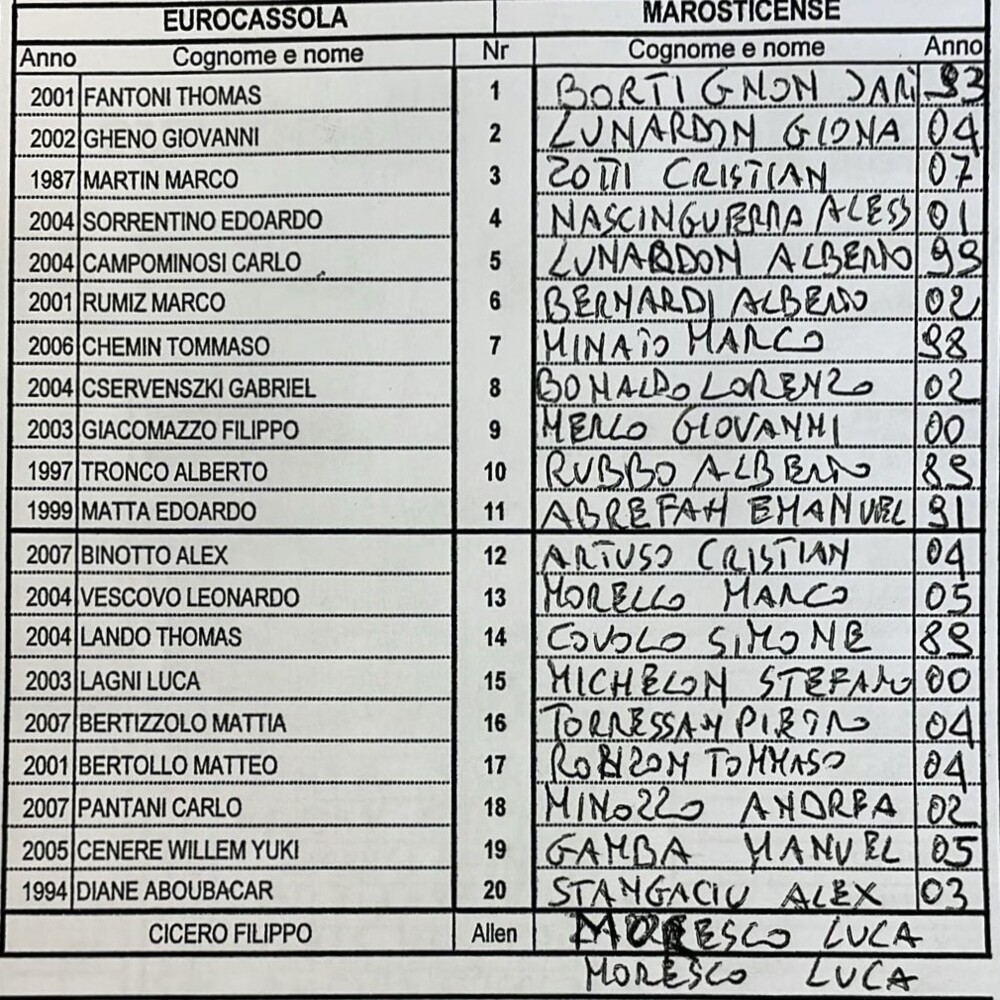 EUROCASSOLA MAROSTICENSE
Anno Cognome e nome Nr Cognome e nome Anno
2001 FANTONI THOMAS 1 BORTIGNON JARI 93
2002 GHENO GIOVANNI 2 LUNARDON GIONA 04
1987 MARTIN MARCO 3 ZOTTI CRISTIAN 07
2004 SORRENTINO EDOARDO 4 NASCINGUERRA ALESS 01
2004 CAMPOMINOSI CARLO 5 LUNARDON ALBERTO 99
2001 RUMIZ MARCO 6 BERNARDI ALBERTO 02
2006 CHEMIN TOMMASO 7 MINATO MARCO 98
2004 CSERVENSZKI GABRIEL 8 BONALDO LORENZO 02
2003 GIACOMAZZO FILIPPO 9 MERLO GIOVANNI 00
1997 TRONCO ALBERTO 10 RUBBO ALBERTO 89
1999 MATTA EDOARDO 11 ABREFAH EMANUEL 91
2007 BINOTTO ALEX 12 ARTUSO CRISTIAN 04
2004 VESCOVO LEONARDO 13 MORELLO MARCO 05
2004 LANDO THOMAS 14 COVOLO SIMONE 89
2003 LAGNI LUCA 15 MICHELON STEFANO 00
2007 BERTIZZOLO MATTIA 16 TORRESSAN PIETRO 04
2001 BERTOLLO MATTEO 17 ROBIZON TOMMASO 04
2007 PANTANI CARLO 18 MINOZZO ANDREA 02
2005 CENERE WILLEM YUKI 19 GAMBA MANUEL 05
1994 DIANE ABOUBACAR 20 STANGACIU ALEX 03
CICERO FILIPPO Allen MORESCO LUCA
MORESCO LUCA